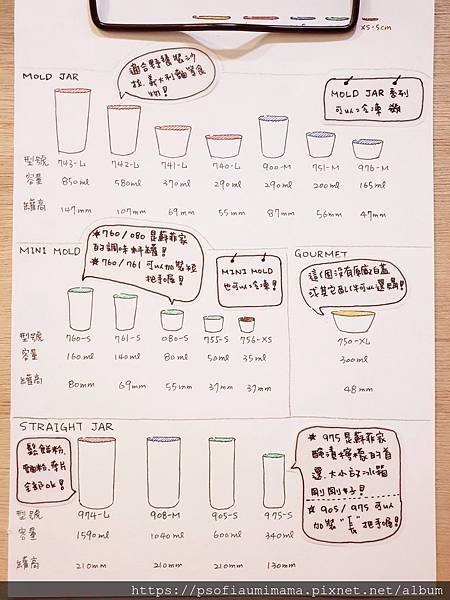 XS-5cm
MOLD JAR
適合野餐裝沙
拉、義大利麵等食
物！
MOLD JAR 系列
可以冷凍 微
型號 743-L 742-L 741-L 740-L 900-M 751-M 976-M
容量 850ml 580ml 370ml 290ml 290ml 200ml 165ml
罐高 147mm 107mm 69mm 55mm 87mm 56mm 47mm
MINI MOLD
*760/080是蘇菲家
的調味料罐！
*760/761 可以加裝短
把手喔！
MINI MOLD
也可以冷凍！
GOURMET
這個沒有原廠白蓋
或其它配件可以選購！
型號 760-S 761-S 080-S 755-S 756-XS
容量 160ml 140ml 80ml 50ml 35ml
罐高 80mm 69mm 55mm 37mm 37mm
750-XL
300ml
48mm
STRAIGHT JAR
鬆餅粉、
麵粉、麥片
全部ok！
* 975是蘇菲家
醃漬檸檬的首
選.大小放冰箱
剛剛好！
* 905/975可以
加裝"長"把手喔！
型號 974-L 908-M 905-S 975-S
容量 1590ml 1040ml 600ml 340ml
罐高 210mm 210mm 210mm 130mm
https://psofiaumimama.pixnet.net/album